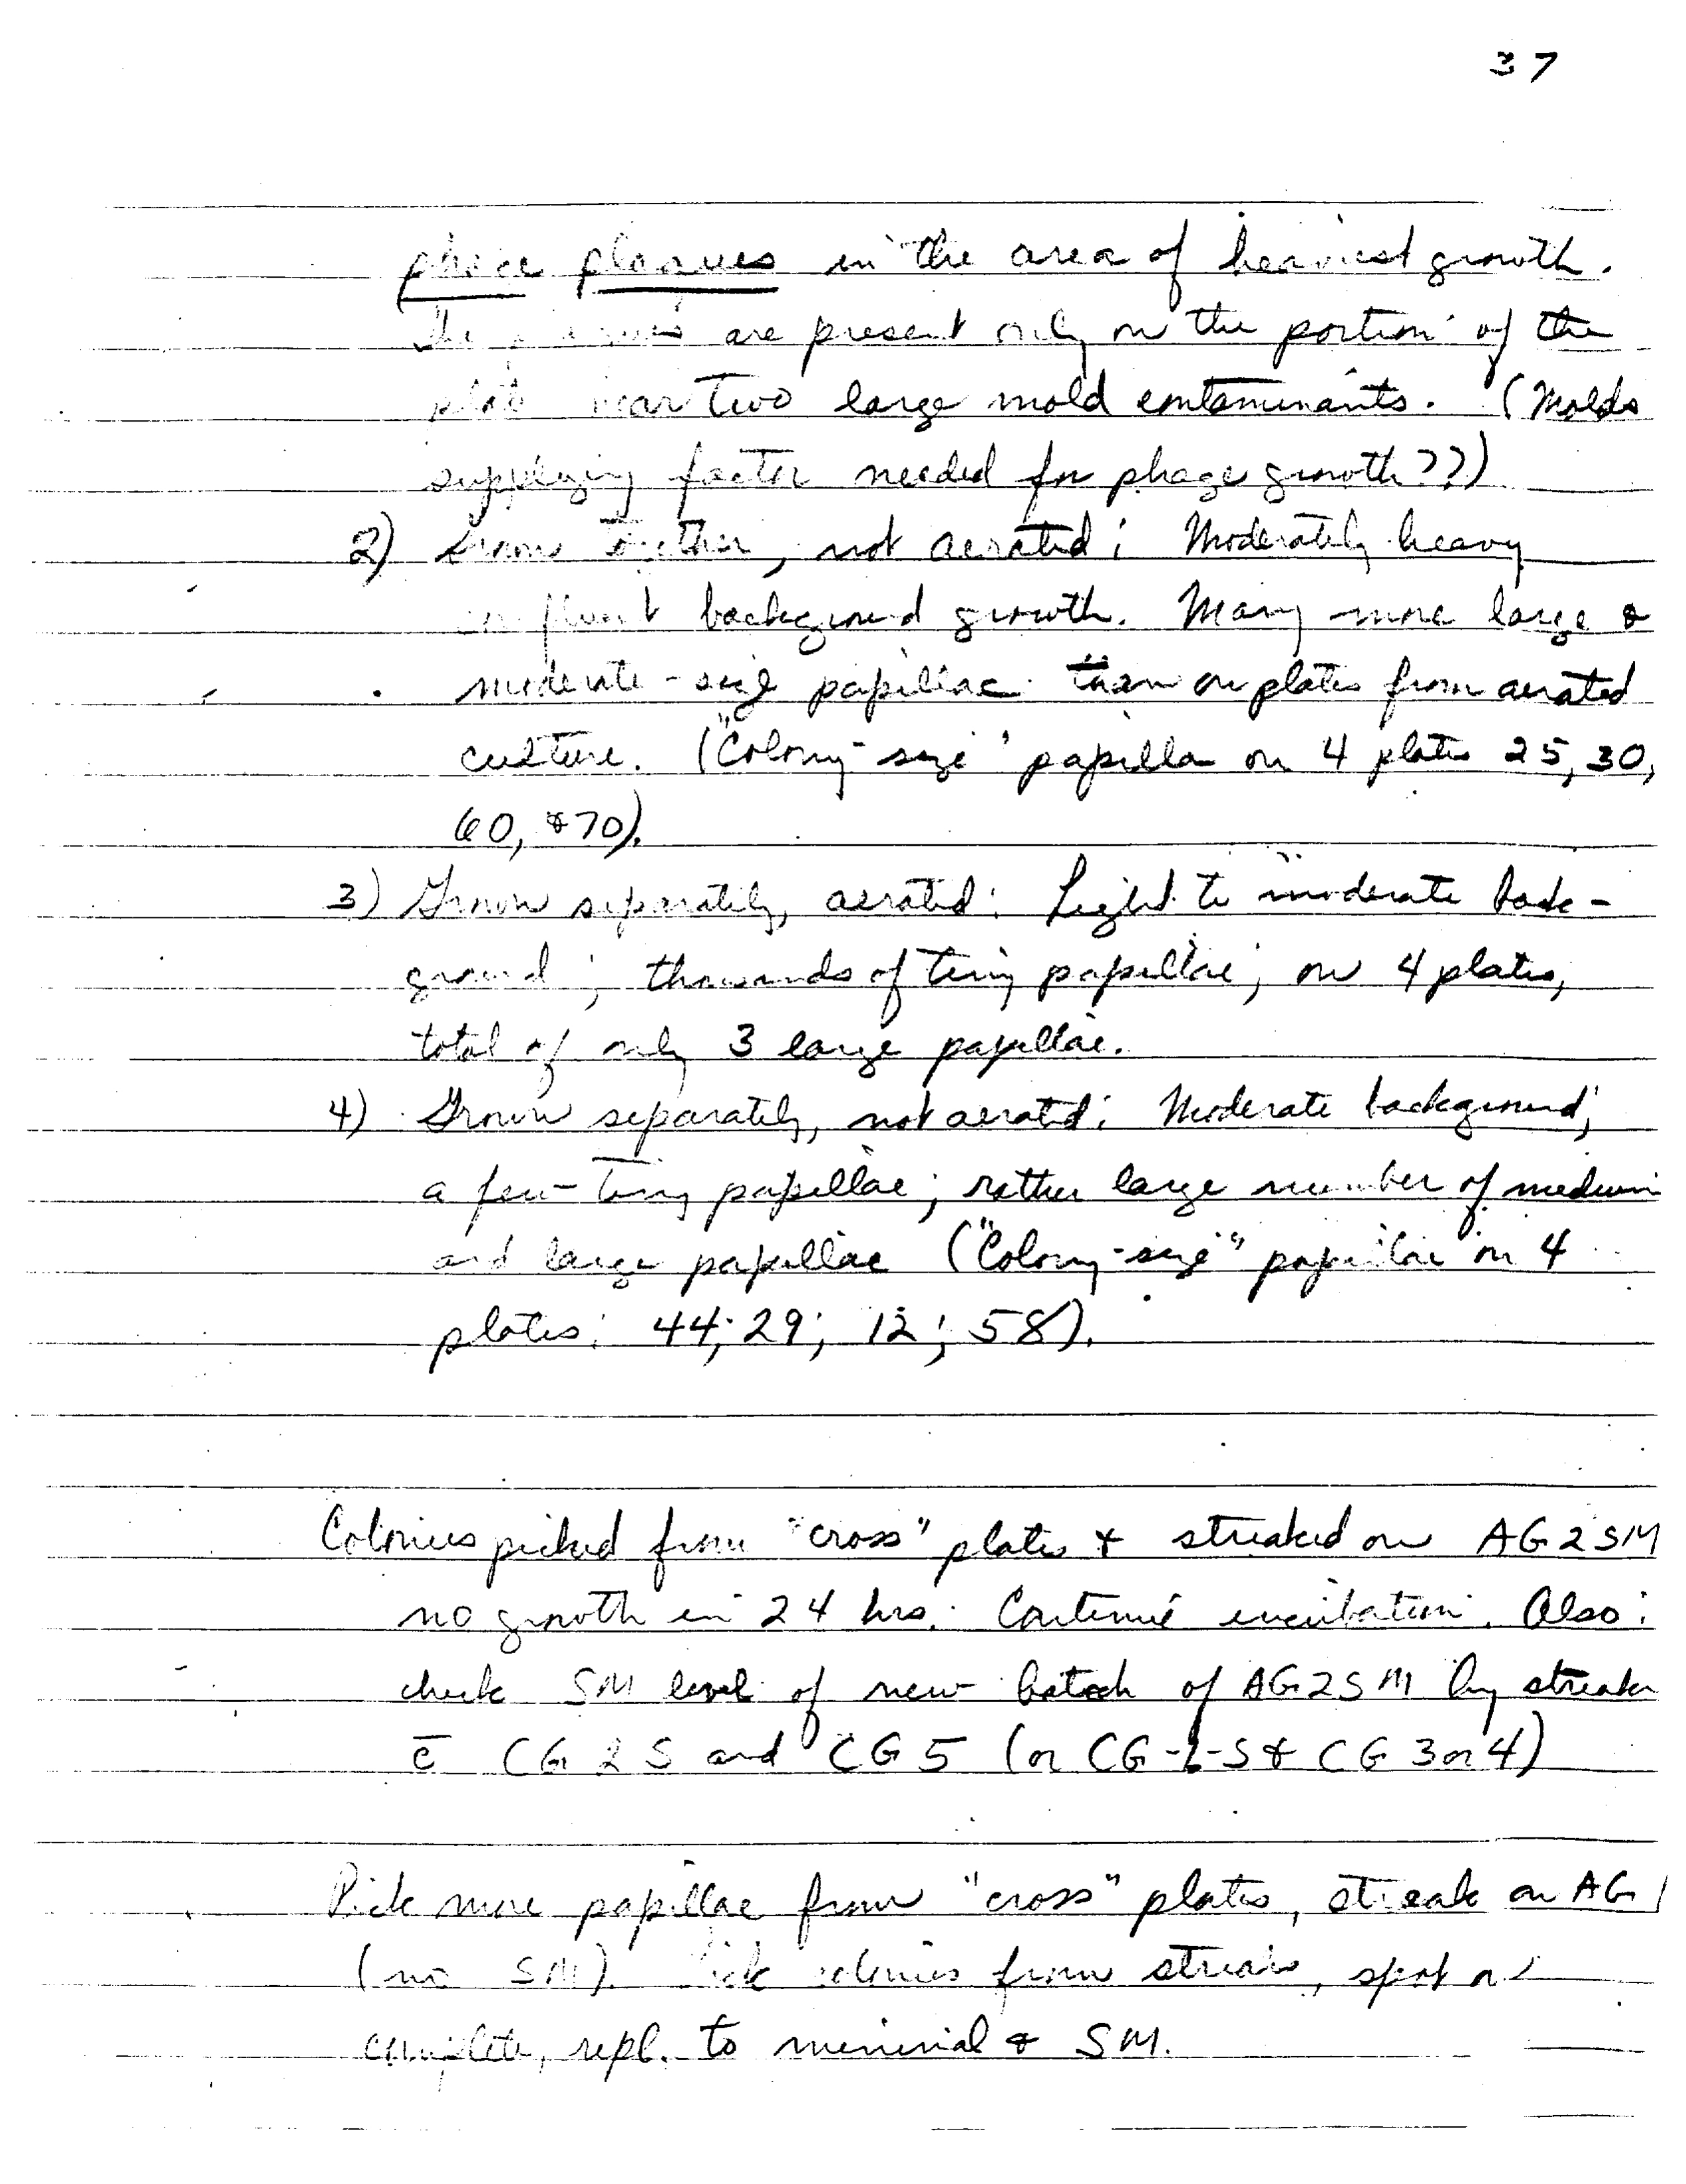 37
phage plaques in the area of heaviest growth.
The plaques are present only on the portion of the
plate near two large mold contaminants. (Molds
supplying factor needed for phage growth??)
2) Grown together, not aerated: Moderately heavy
confluent background growth. Many more large &
moderate-size papillae than on plates from aerated
culture. ("Colony-size" papilla on 4 plates 25, 30,
60, & 70).
3) Grown separately, aerated: Light to moderate back-
ground; thousands of tiny papillae; on 4 plates,
total of only 3 large papillae.
4) Grown separately, not aerated: Moderate background;
a few tiny papillae; rather large number of medium
and large papillae ("Colony-size" papillae on 4
plates: 44; 29; 12; 58).
Colonies picked from "cross" plates & streaked on AG2SM
no growth in 24 hrs. Continue incubation. Also:
check SM level of new batch of AG2SM by streaks
c̄ CG2S and CG5 (or CG-1-S & CG 3 or 4)
Pick more papillae from "cross" plates, streak on AG1
(no SM). Pick colonies from streaks, spot on
complete, repl. to minimal & SM.